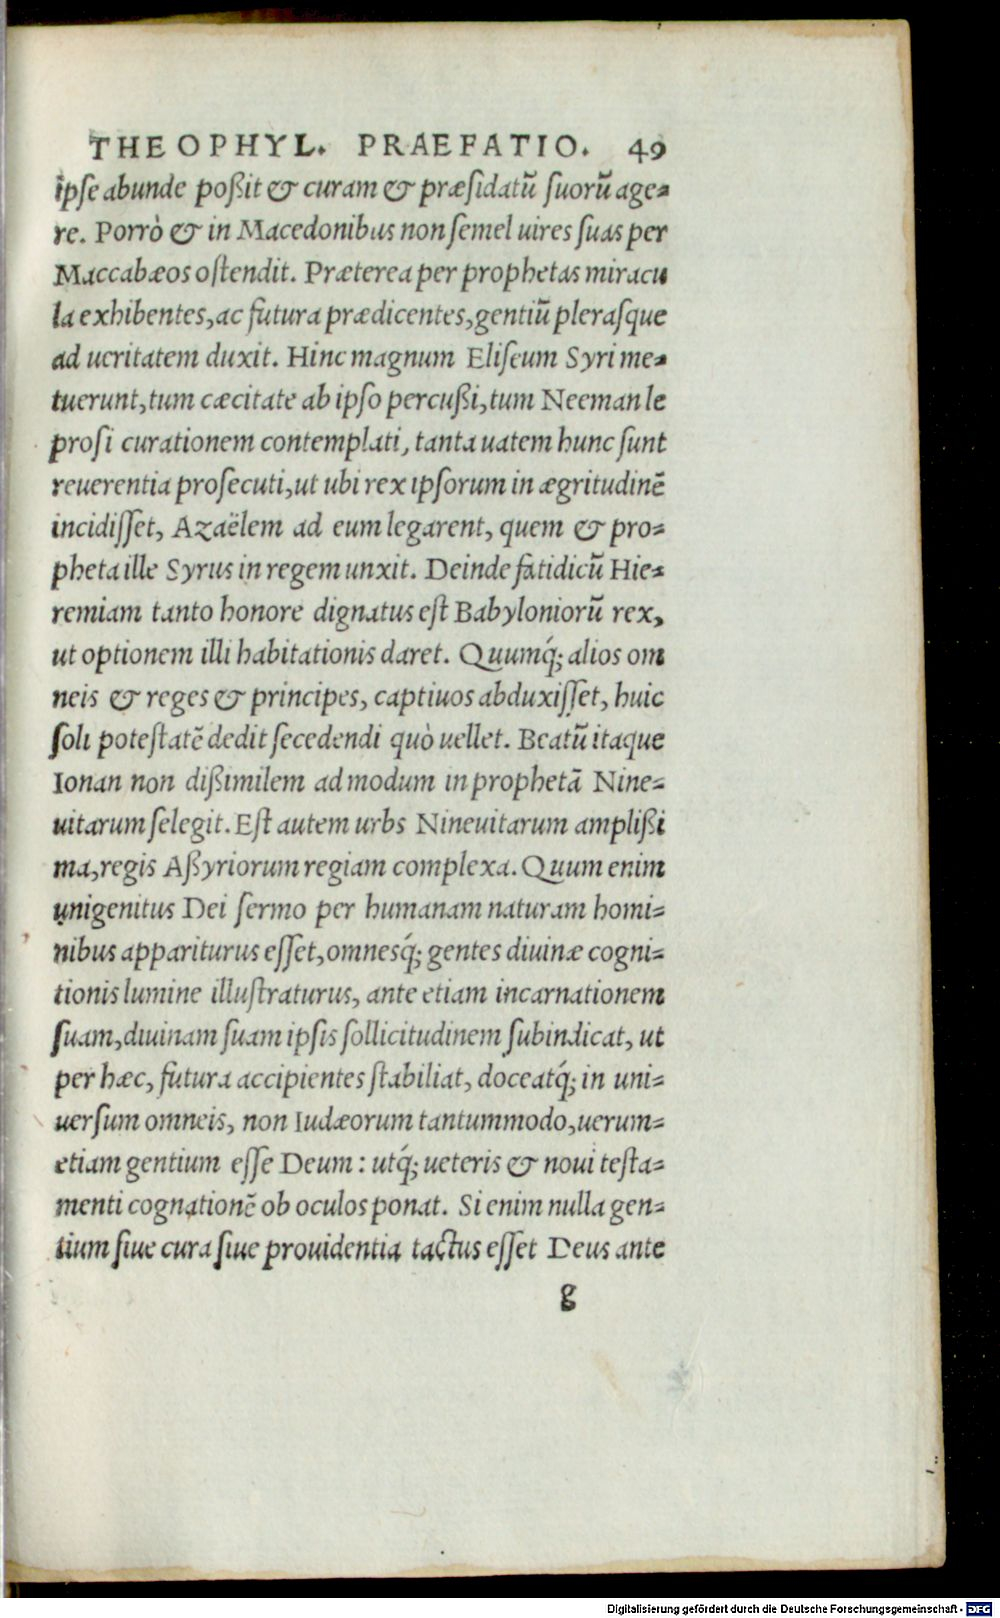 THEOPHYL. PRAEFATIO. 49
ipse abunde poßit & curam & præsidatũ suorũ age-
re. Porrò & in Macedonibus non semel uires suas per
Maccabæos ostendit. Præterea per prophetas miracu
la exhibentes, ac futura prædicentes, gentiũ plerasque
ad ueritatem duxit. Hinc magnum Eliseum Syri me-
tuerunt, tum cæcitate ab ipso percußi, tum Neeman le
prosi curationem contemplati, tanta uatem hunc sunt
reuerentia prosecuti, ut ubi rex ipsorum in ægritudinẽ
incidisset, Azaëlem ad eum legarent, quem & pro-
pheta ille Syrus in regem unxit. Deinde fatidicũ Hie-
remiam tanto honore dignatus est Babyloniorũ rex,
ut optionem illi habitationis daret. Quumq́; alios om
neis & reges & principes, captiuos abduxisset, huic
soli potestatẽ dedit secedendi quò uellet. Beatũ itaque
Ionan non dißimilem ad modum in prophetã Nine-
uitarum selegit. Est autem urbs Nineuitarum amplißi
ma, regis Aßyriorum regiam complexa. Quum enim
unigenitus Dei sermo per humanam naturam homi-
nibus appariturus esset, omnesq́; gentes diuinæ cogni-
tionis lumine illustraturus, ante etiam incarnationem
suam, diuinam suam ipsis sollicitudinem subindicat, ut
per hæc, futura accipientes stabiliat, doceatq́; in uni-
uersum omneis, non Iudæorum tantummodo, uerum-
etiam gentium esse Deum: utq́; ueteris & noui testa-
menti cognationẽ ob oculos ponat. Si enim nulla gen-
tium siue cura siue prouidentia tactus esset Deus ante
g
Digitalisierung gefördert durch die Deutsche Forschungsgemeinschaft - DFG